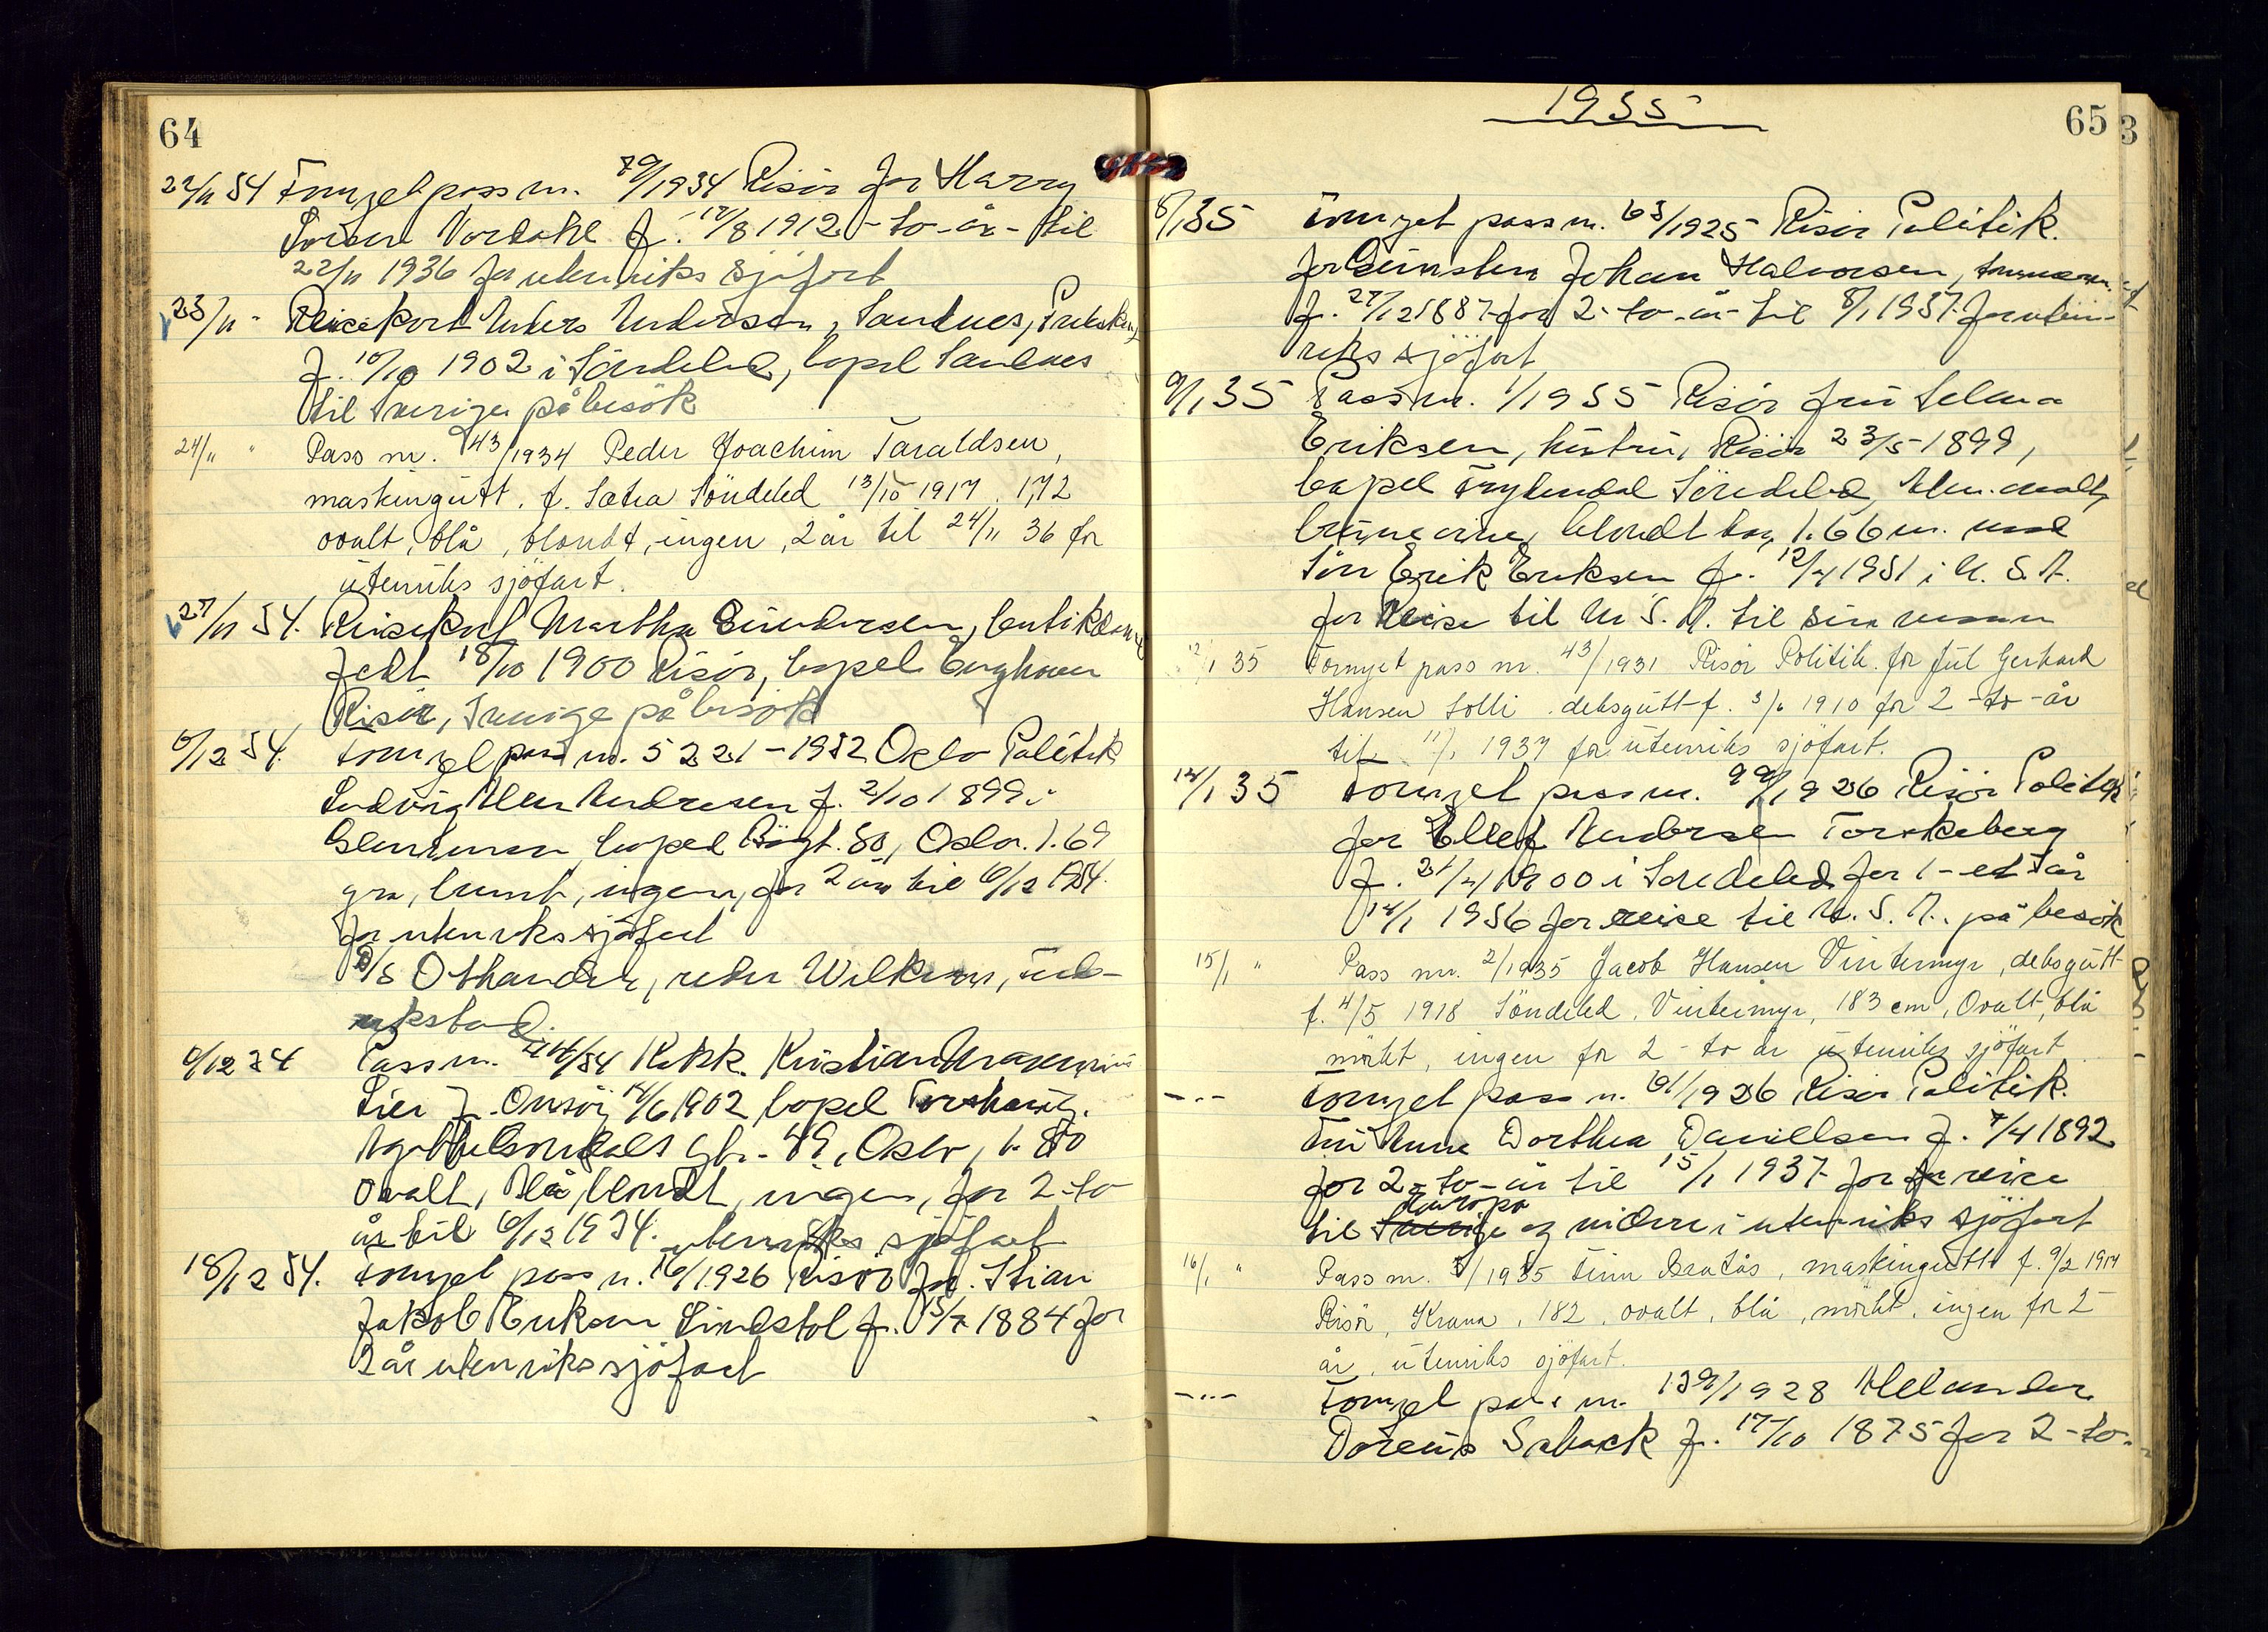 64
22/11 34 Fornyet pass nr. 70/1934 Risör for Harry
Vordahl f. 17/8 1912 - to - år - til
22/11 1936 for utenriks sjöfart
23/11 " Reisekort Anders Andersen, Sandnes,
f. 10/10 1902 i Söndeled, bopel Sandnes
til Sverige på besök
24/11 " Pass nr. 43/1934 Peder Joachim Taraldsen,
maskingutt. f. Sætra Söndeled 13/10 1917. 1,72
ovalt, blå, blondt, ingen, 2 år til 24/11 36 for
utenriks sjöfart.
27/11 34. Reisekort Martha Gundersen,
födt 18/10 1900 Risör, bopel Enghaven
Risör, Sverige på besök
6/12 34. Fornyet pass nr. 5221 - 1932 Oslo Politik
Ludvig Andresen f. 2/10 1899 i
Glemmen bopel 30, Oslo. 1.69
grå, brunt, ingen, for 2 år til 6/12 1934.
for utenriks sjöfart
S/S Othander, reder Wilkens,
6/12 34 Pass nr. 44/34 Kristian
Lier f. Onsöy 14/6 1902 bopel
gt. - 49, Oslo, 1.80
Ovalt, blå, blondt, ingen, for 2 - to
år til 6/12 1934. utenriks sjöfart
18/12 34. Fornyet pass nr. 16/1926 Risör for Stian
Jakob Eriksen Lindstöl f. 15/7 1884 for
2 år utenriks sjöfart
1935
65
3
8/1 35 Fornyet pass nr. 63/1925 Risör Politik.
for Johan Halvorsen, tömmerm.
f. 27/12 1887 for 2 - to - år til 8/1 1937 for uten-
riks sjöfart
9/1 35 Pass nr. 1/1935 Risör fru Selma
Eriksen, hustru, Risör 23/5 1899,
bopel Trydendal Söndeled, ovalt,
brune öine, blondt har, 1.66 m. med
Sön Erik Eriksen f. 12/4 1931 i U. S. A.
for Reise til U. S. A. til sin mann
12/1 35 Fornyet pass nr. 43/1931 Risör Politik. for Jul Gerhard
Hansen Solli. deksgutt - f. 3/6 1910 for 2 - to - år
til 11/1 1937 for utenriks sjöfart.
14/1 35 Fornyet pass nr. 99/1926 Risör Politik
for Ellef Andersen Torskeberg
f. 21/4 1900 i Söndeled for 1 - et år
14/1 1936 for reise til U. S. A. på besök
15/1 " Pass nr. 2/1935 Jacob Hansen Vintermyr, deksgutt
f. 4/5 1918 Söndeled, Vintermyr, 183 cm, Ovalt, blå
mörkt, ingen for 2 - to år utenriks sjöfart
- " - Fornyet pass nr. 61/1926 Risör Politik.
Fru Anne Dorthea Daniellsen f. 7/4 1892
for 2 - to - år til 15/1 1937 for reise
Europa
til Sverige og videre i utenriks sjöfart
16/1 " Pass nr. 3/1935 Finn Bratås, maskingutt f. 9/2 1917
Risör, Krana, 182, ovalt, blå, mörkt, ingen for 2
år, utenriks sjöfart.
- " - Fornyet pass nr. 139/1928
f. 17/10 1875 for 2 - to -